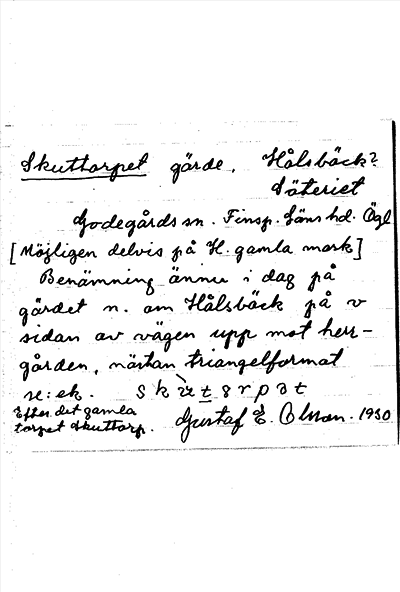 Skuttorpet gärde. Hålsbäck?
Säteriet
Godegårds sn. Finsp. läns hd. Ögl
[Möjligen delvis på H. gamla mark]
Benämning ännu i dag på
gärdet n. om Hålsbäck på v
sidan av vägen upp mot herr-
gården, nästan triangelformat
se: ek. skut8rpat
Efter det gamla
torpet Skuttorp. Gustaf E. Olsson. 1930